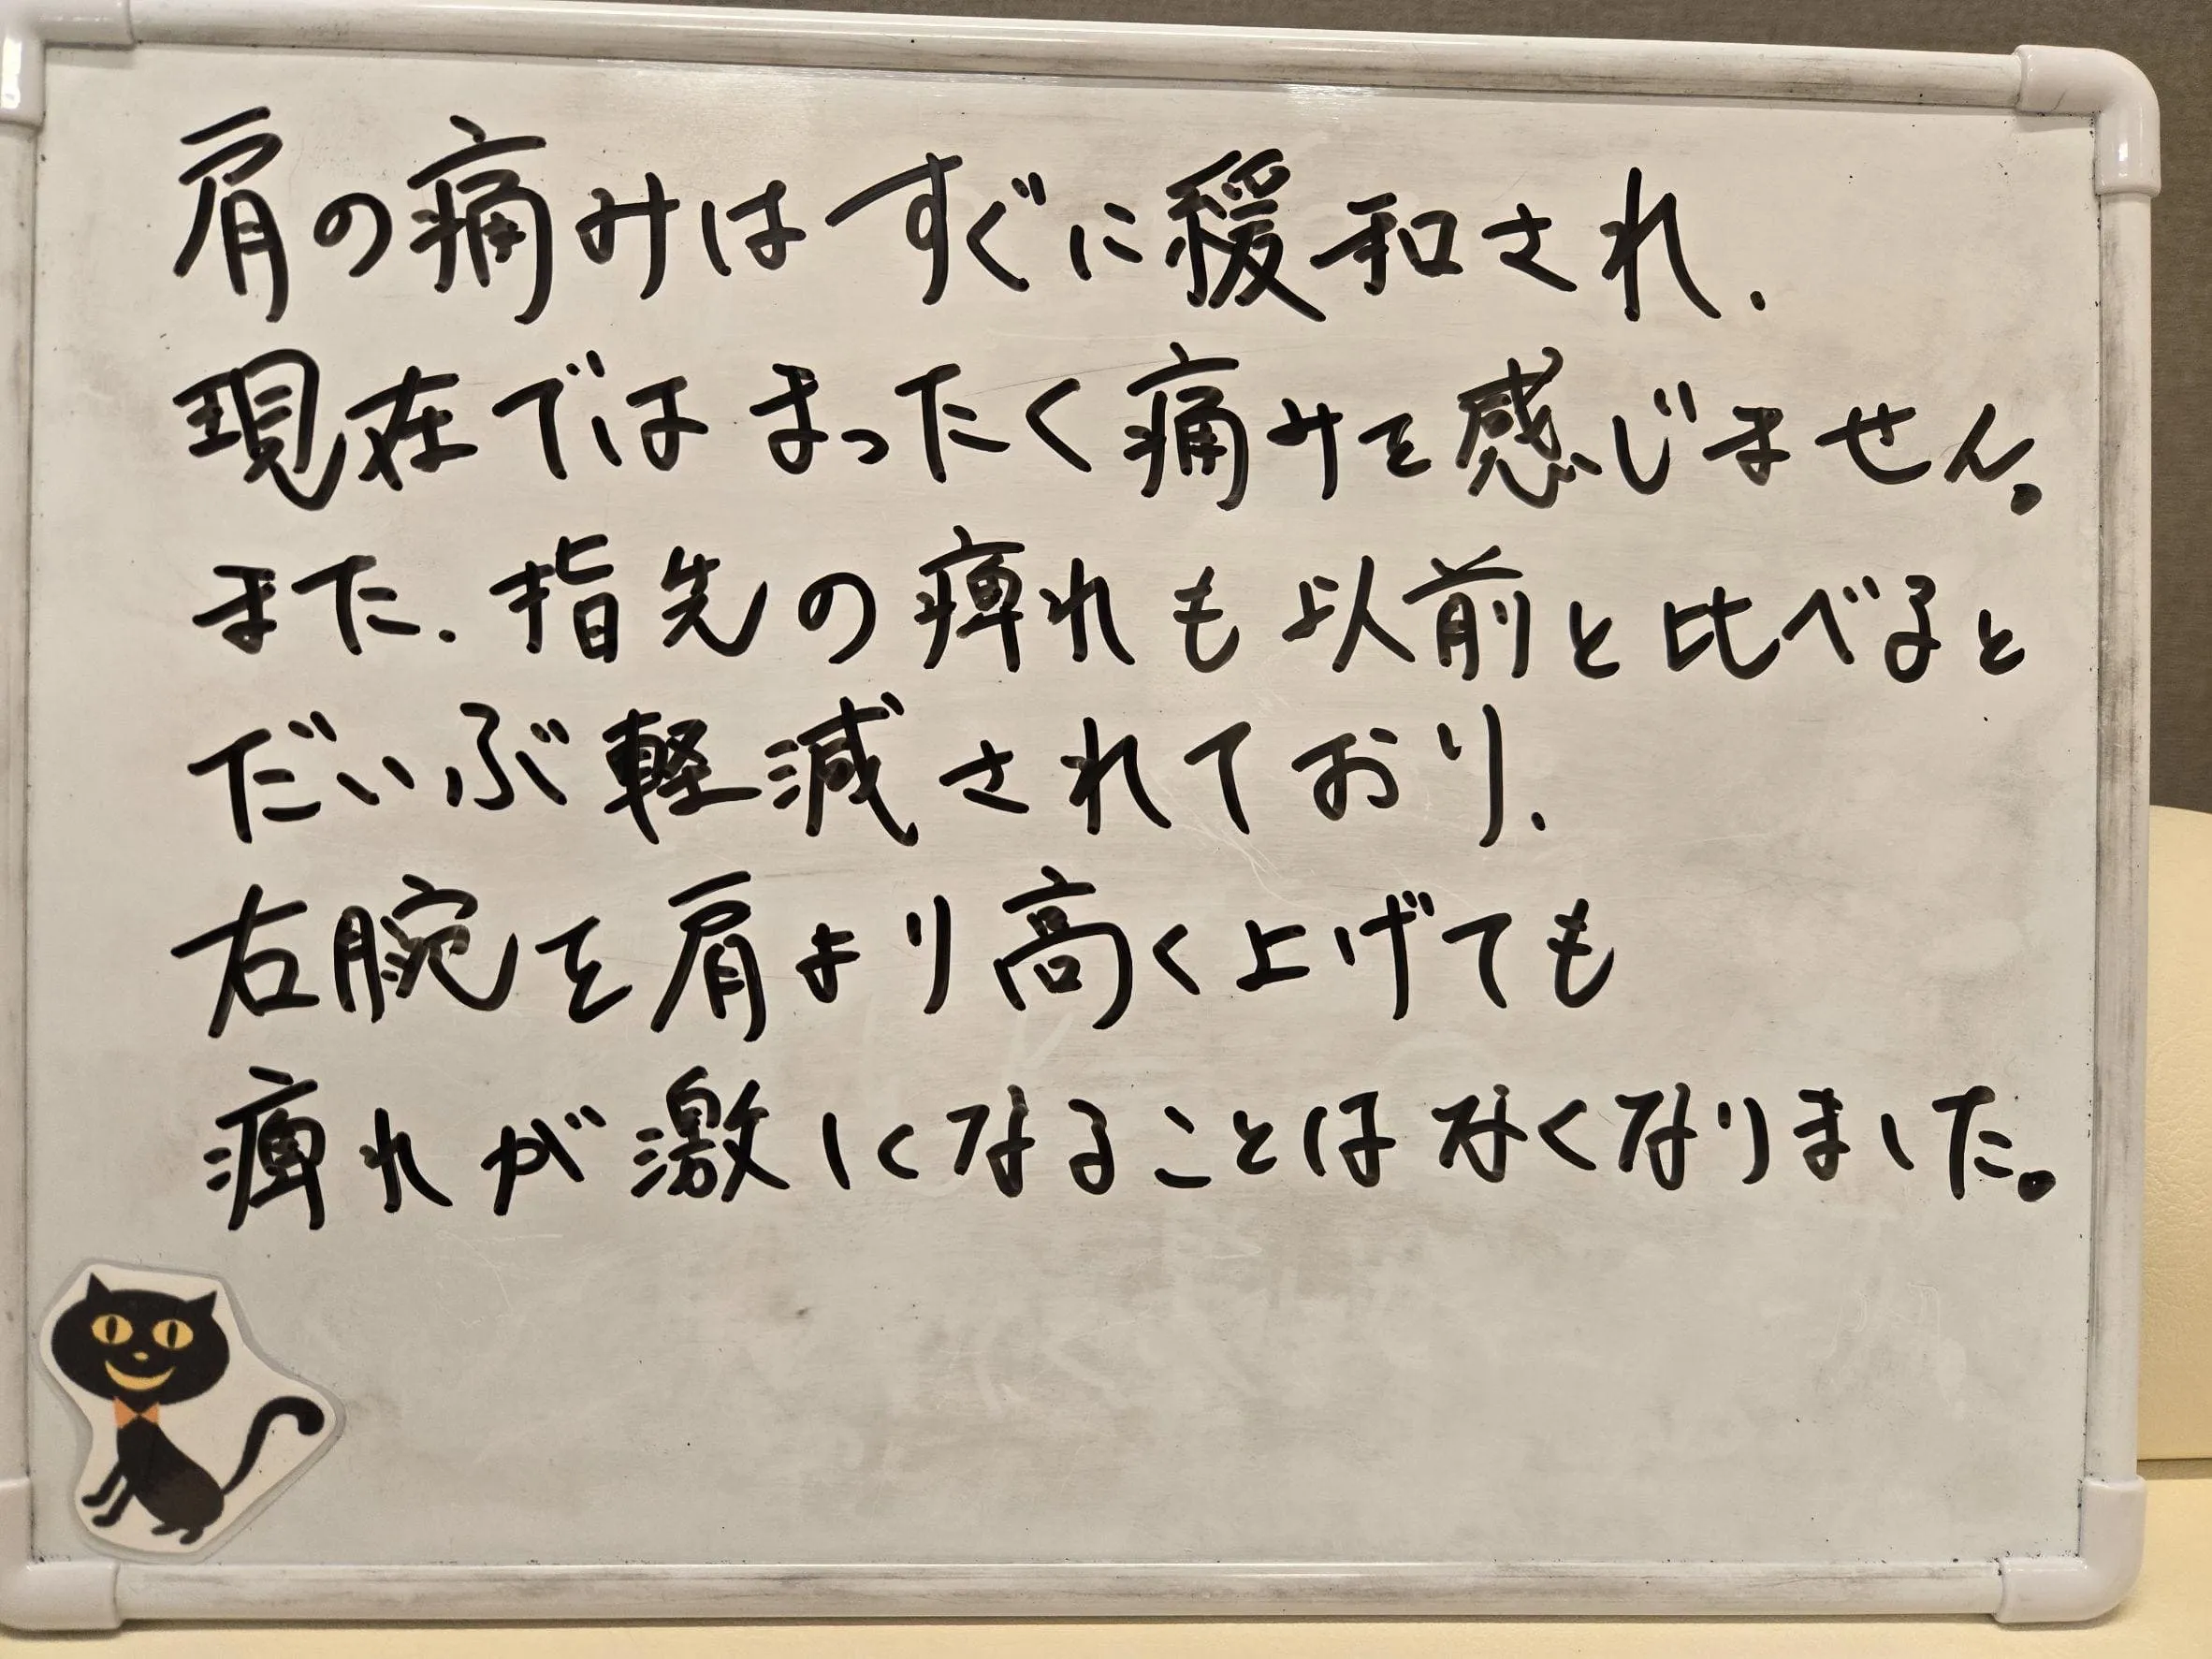 肩の痛みはすぐに緩和され、
現在ではまったく痛みを感じません。
また、指先の痺れも以前と比べると
だいぶ軽減されており、
右腕を肩より高く上げても
痺れが激しくなることはなくなりました。